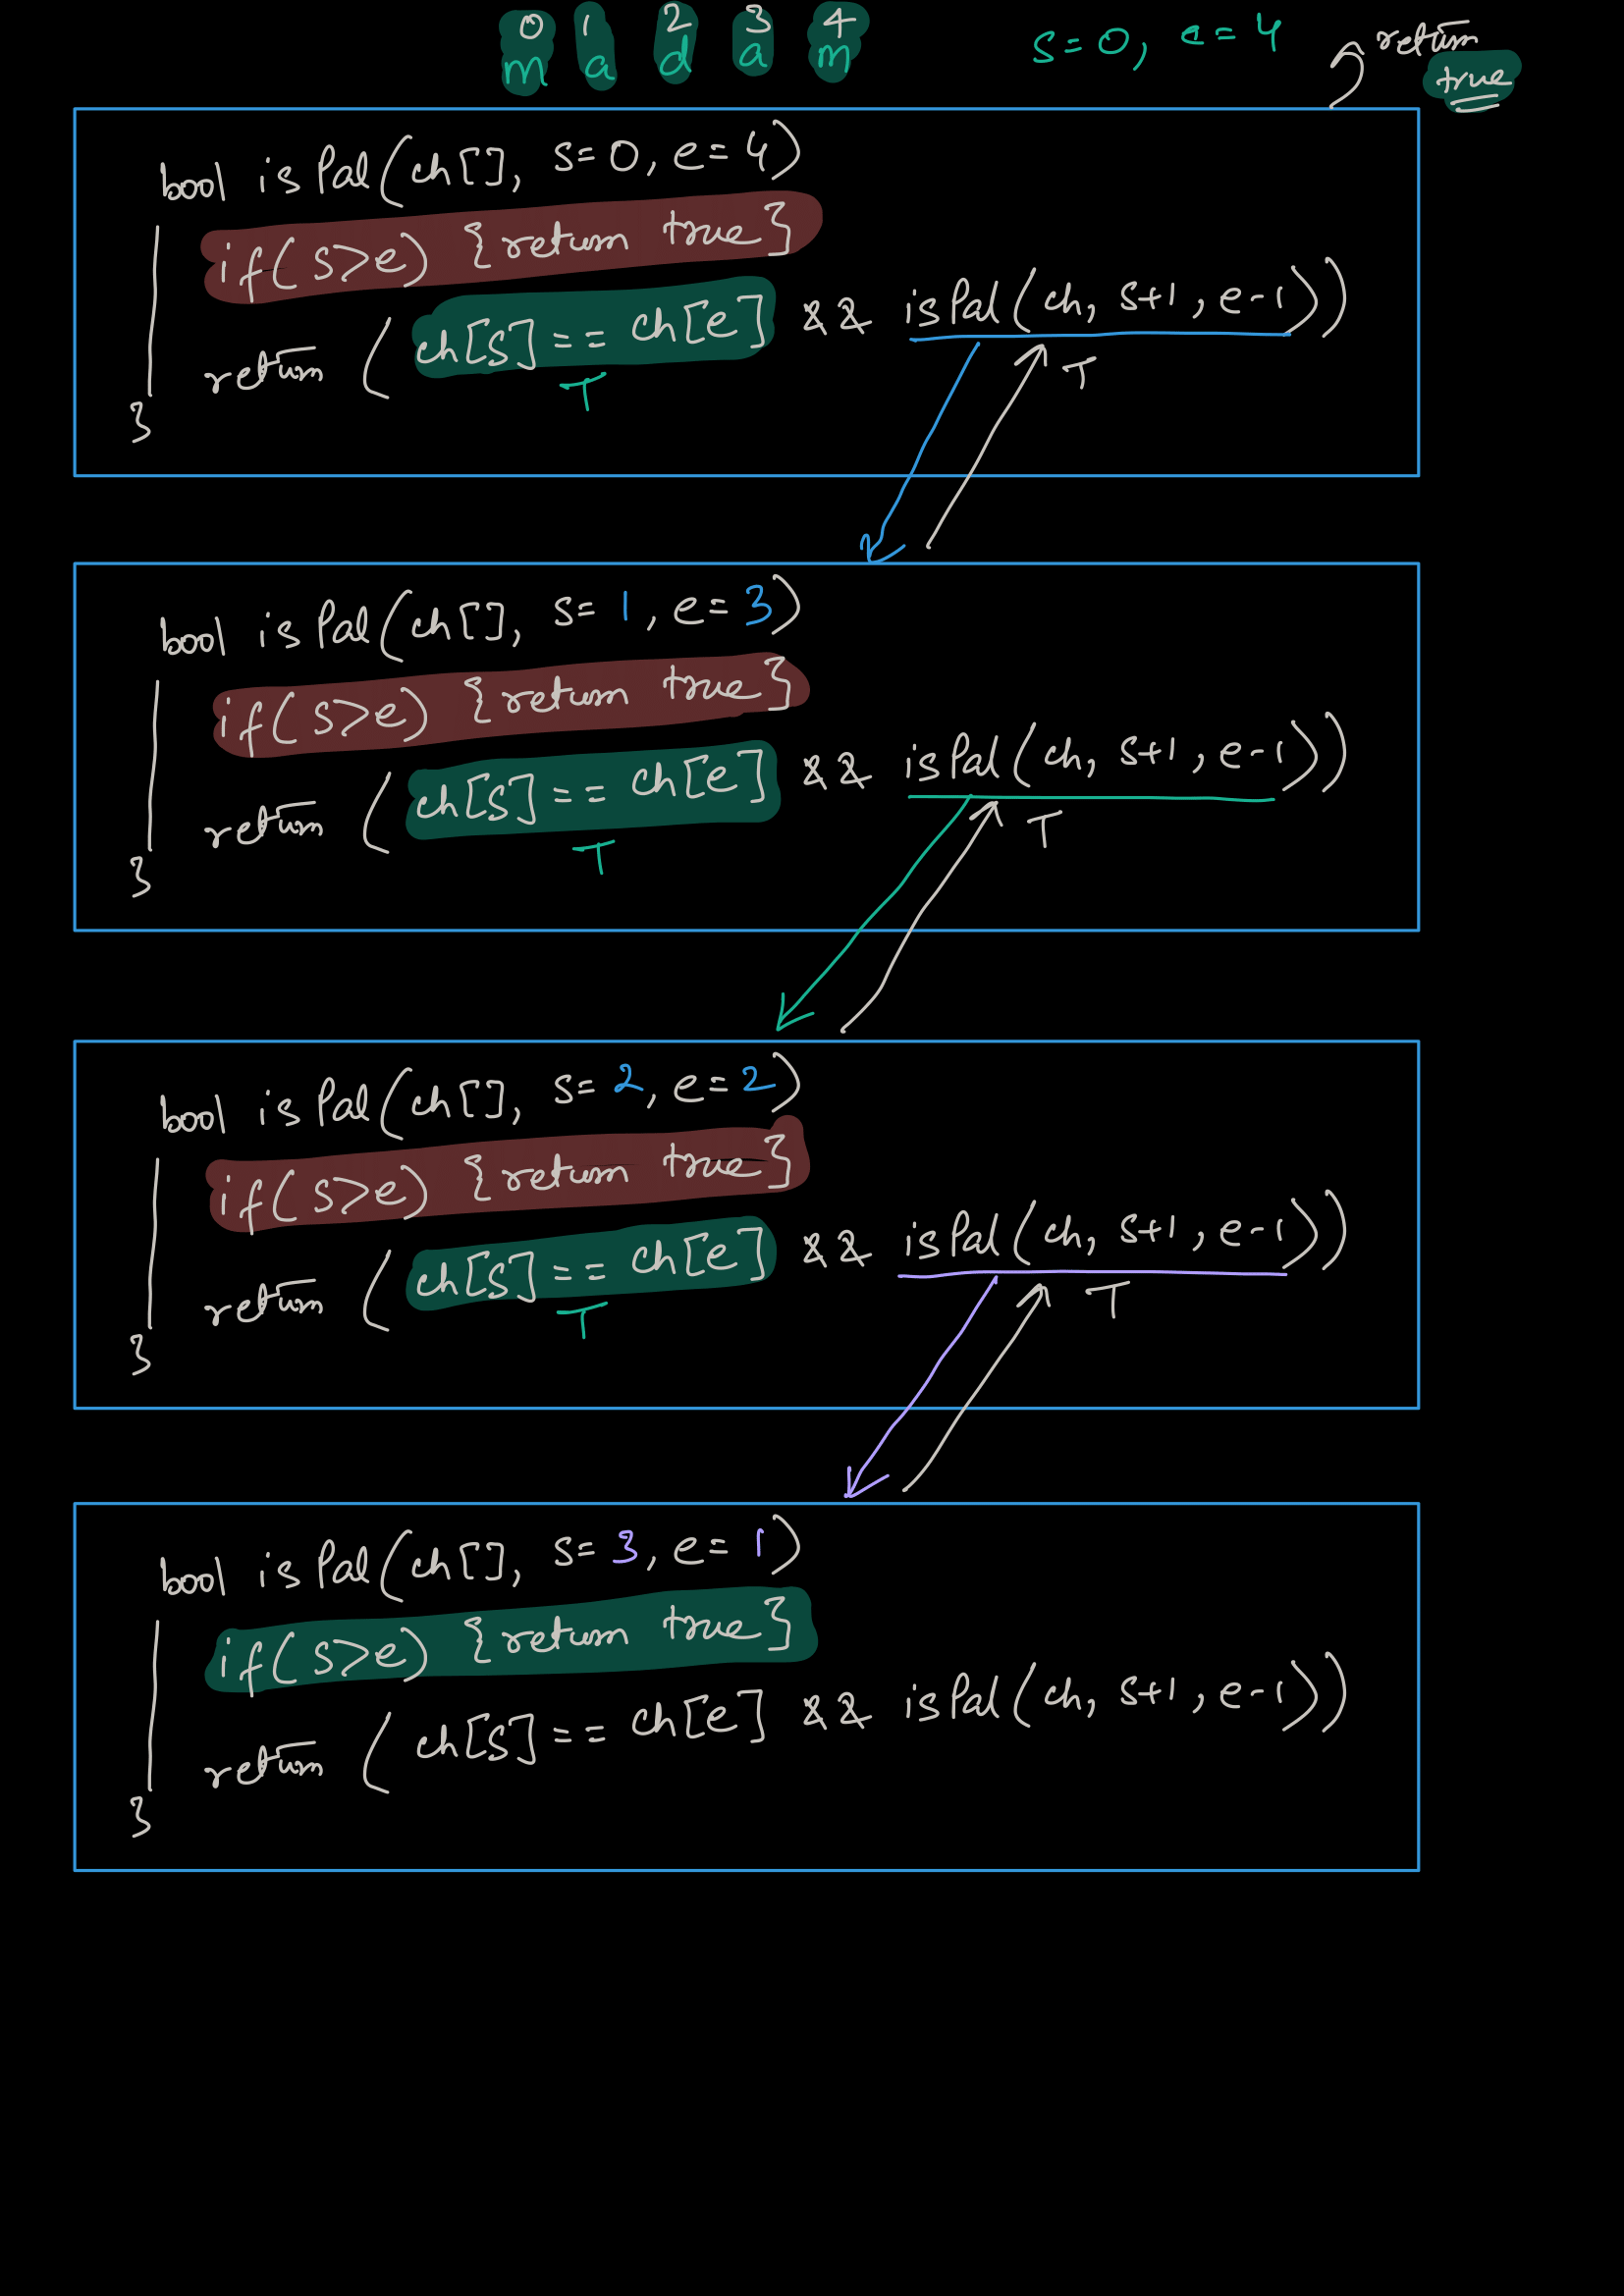 0 1 2 3 4
m a d a m
s=0, e=4
return
true
bool isPal(ch[], s=0, e=4)
if(s>e) {return true}
return (ch[s]==ch[e] && isPal(ch, s+1, e-1))
T T
}
bool isPal(ch[], s=1, e=3)
if(s>e) {return true}
return (ch[s]==ch[e] && isPal(ch, s+1, e-1))
T T
}
bool isPal(ch[], s=2, e=2)
if(s>e) {return true}
return (ch[s]==ch[e] && isPal(ch, s+1, e-1))
T T
}
bool isPal(ch[], s=3, e=1)
if(s>e) {return true}
return (ch[s]==ch[e] && isPal(ch, s+1, e-1))
}